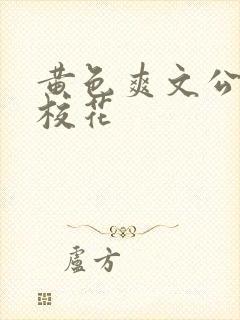 黄色爽文公
校花
卢方